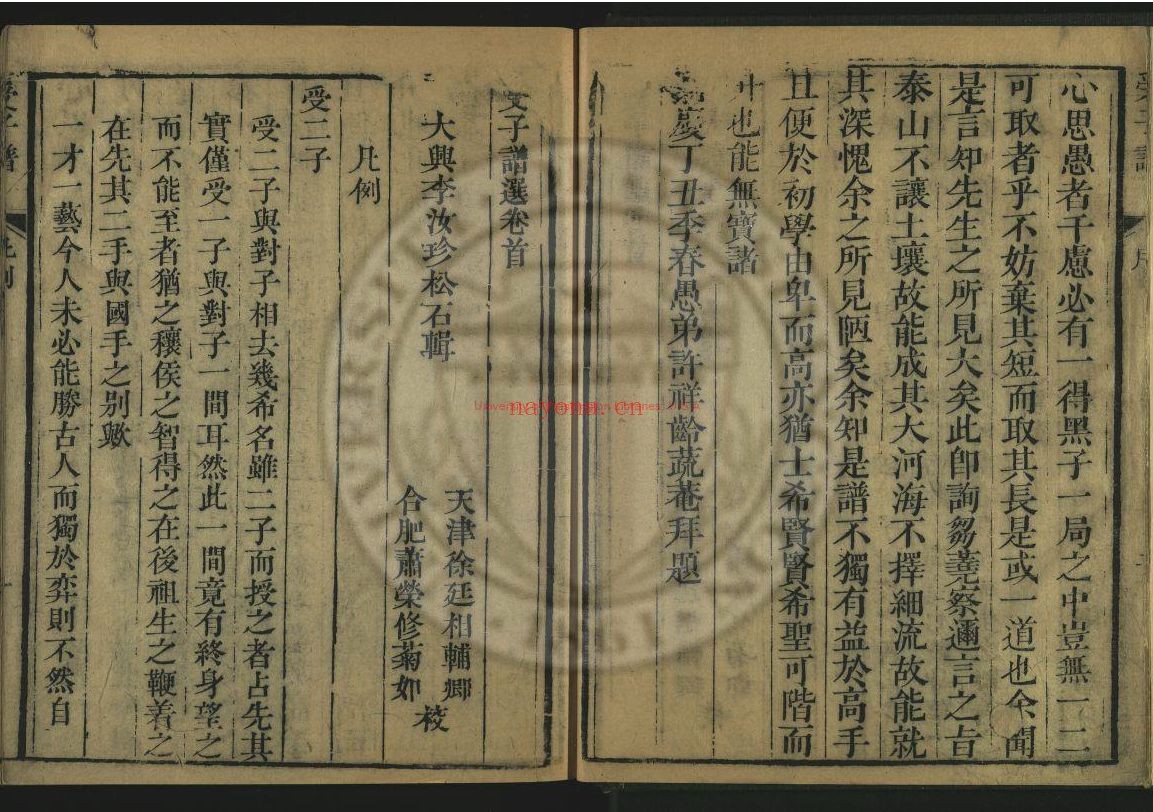 心思愚者千慮必有一得黑子一局之中豈無一二
可取者乎不妨棄其短而取其長是或一道也余聞
是言知先生之所見大矣此卽詢芻蕘察邇言之旨
泰山不讓土壤故能成其大河海不擇細流故能就
其深愧余之所見陋矣余知是譜不獨有益於高手
且便於初學由卑而高亦猶士希賢賢希聖可階而
升也能無寶諸
嘉慶丁丑季春愚弟許祥齡蔬菴拜題
受子譜選卷首
大興李汝珍松石輯
天津徐廷相輔卿
合肥蕭榮修菊如
校
凡例
受二子
受二子與對子相去幾希名雖二子而授之者占先其
實僅受一子與對子一間耳然此一間竟有終身望之
而不能至者猶之穰侯之智得之在後祖生之鞭着之
在先其二手與國手之别歟
一才一藝今人未必能勝古人而獨於弈則不然自
受子譜
凡例
nayona.cn